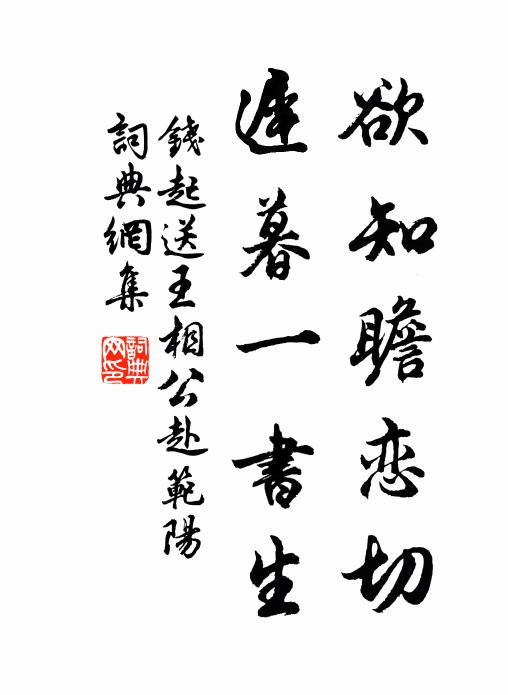 欲知瞻恋切
遲暮一書生
錢起送王相公赴範陽
詞典網集
詞典網印